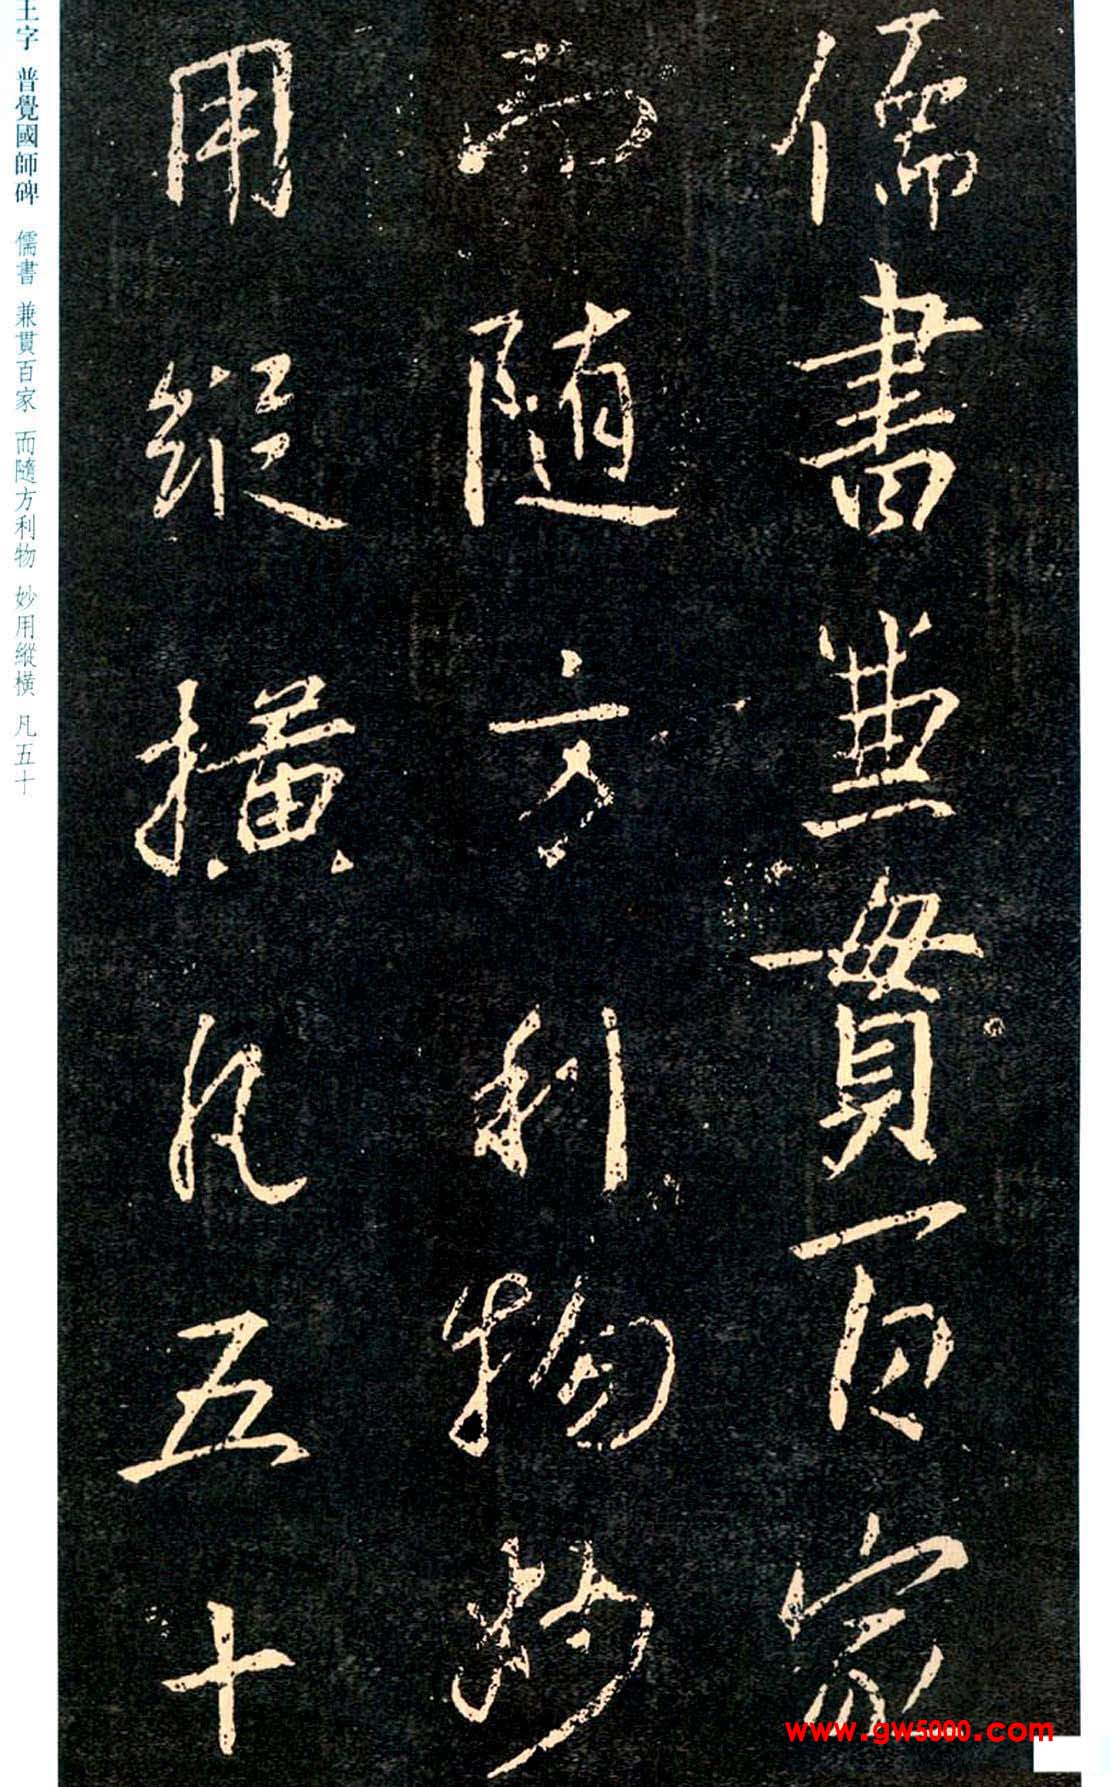 儒書兼貫百家
而隨方利物妙
用縱橫凡五十
王字 普覺國師碑 儒書 兼貫百家 而隨方利物 妙用縱橫 凡五十
www.gw5000.com